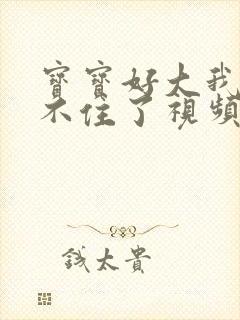 寶寶好大我
不住了視頻
錢太貴